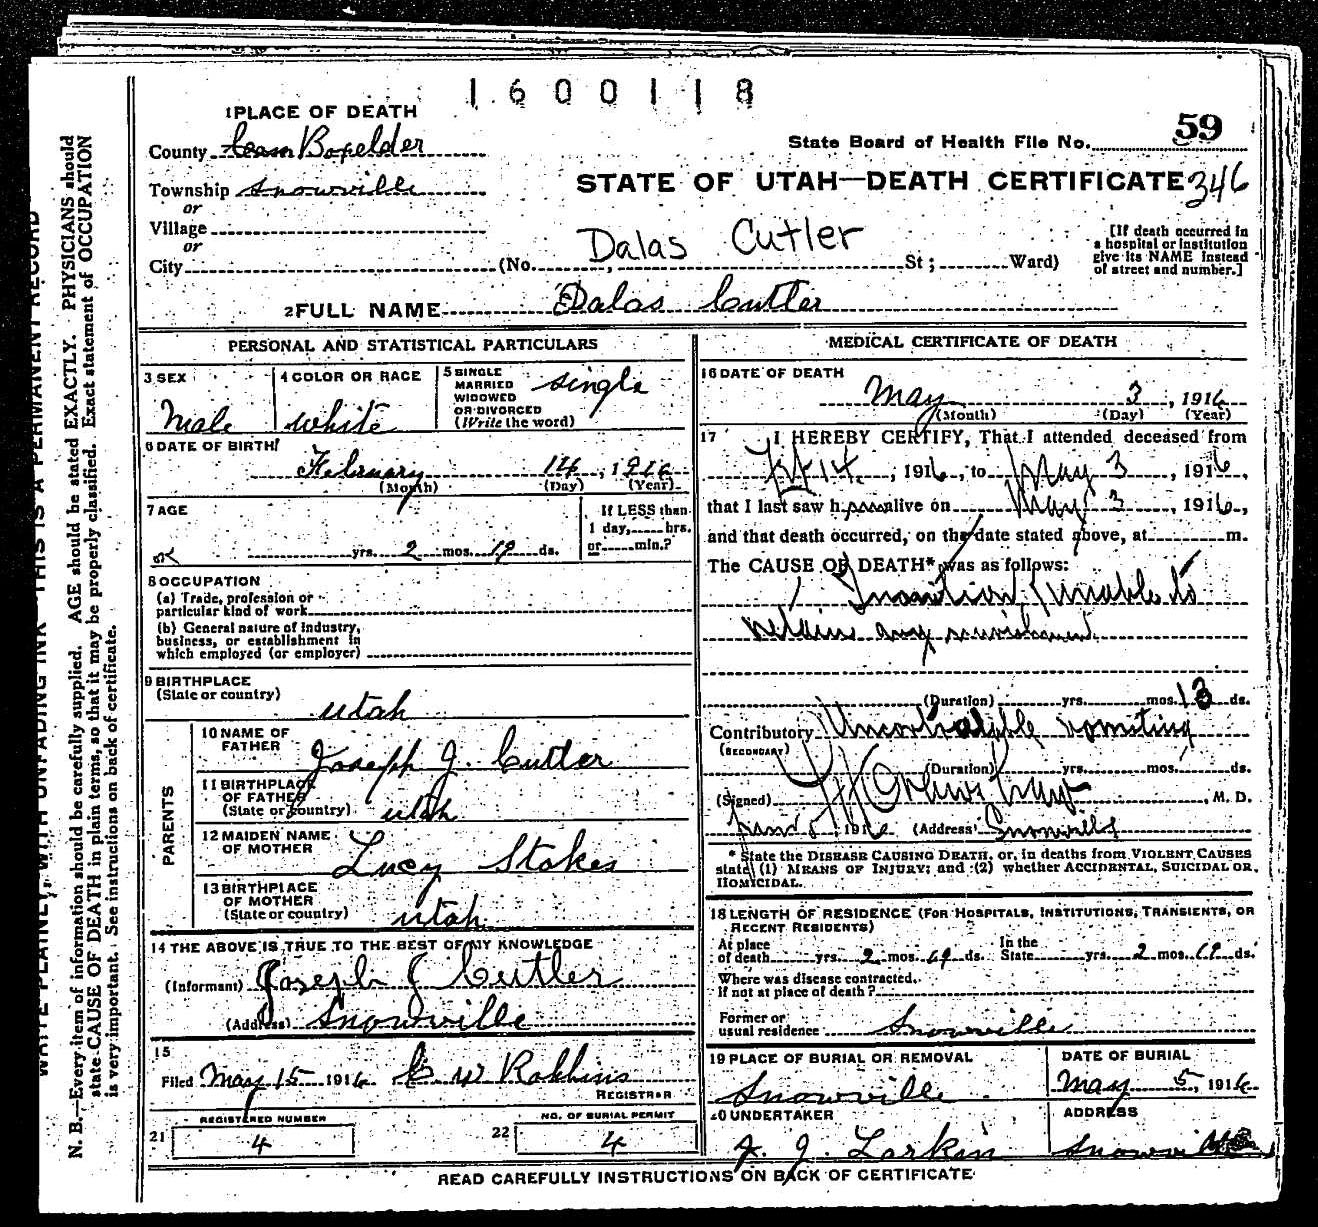 1600118
1 PLACE OF DEATH
59
State Board of Health File No.
County Boxelder
STATE OF UTAH—DEATH CERTIFICATE 346
Township Snowville
or
Village
or
City (No. Dalas Cutler St; Ward)
[If death occurred in
a hospital or institution
give its NAME instead
of street and number.]
2 FULL NAME Dalas Cutler
PERSONAL AND STATISTICAL PARTICULARS
3 SEX
Male
4 COLOR OR RACE
white
5 SINGLE
MARRIED
WIDOWED
OR DIVORCED
(Write the word)
single
6 DATE OF BIRTH
February 14, 1916
(Month) (Day) (Year)
7 AGE
yrs. 2 mos. 19 ds.
If LESS than
1 day, hrs.
or min.?
8 OCCUPATION
(a) Trade, profession or
particular kind of work
(b) General nature of industry,
business, or establishment in
which employed (or employer)
9 BIRTHPLACE
(State or country)
utah
PARENTS
10 NAME OF
FATHER
Joseph J. Cutler
11 BIRTHPLACE
OF FATHER
(State or country)
utah
12 MAIDEN NAME
OF MOTHER
Lucy Stokes
13 BIRTHPLACE
OF MOTHER
(State or country)
utah
14 THE ABOVE IS TRUE TO THE BEST OF MY KNOWLEDGE
(Informant) Joseph J Cutler
(Address) Snowville
15
Filed May 15 1916 C W Robbins
REGISTRAR
REGISTERED NUMBER
21 4
NO. OF BURIAL PERMIT
22 4
MEDICAL CERTIFICATE OF DEATH
16 DATE OF DEATH
May 3, 1916
(Month) (Day) (Year)
17 I HEREBY CERTIFY, That I attended deceased from
14, 1916, to May 3, 1916,
that I last saw h alive on May 3, 1916,
and that death occurred, on the date stated above, at m.
The CAUSE OF DEATH* was as follows:
Inanition, Unable to
retain any nourishment
(Duration) yrs. mos. 13 ds.
Contributory Uncontrolable vomiting
(SECONDARY)
(Duration) yrs. mos. ds.
(Signed) M. D.
1916 (Address) Snowville
* State the DISEASE CAUSING DEATH, or, in deaths from VIOLENT CAUSES
state (1) MEANS OF INJURY; and (2) whether ACCIDENTAL, SUICIDAL OR
HOMICIDAL.
18 LENGTH OF RESIDENCE (FOR HOSPITALS, INSTITUTIONS, TRANSIENTS, OR
RECENT RESIDENTS)
At place
of death yrs. 2 mos. 19 ds.
In the
State yrs. 2 mos. 19 ds.
Where was disease contracted,
if not at place of death?
Former or
usual residence Snowville
19 PLACE OF BURIAL OR REMOVAL
Snowville
DATE OF BURIAL
May 5, 1916
20 UNDERTAKER
J. Larkin
ADDRESS
READ CAREFULLY INSTRUCTIONS ON BACK OF CERTIFICATE
WRITE PLAINLY, WITH UNFADING INK—THIS IS A PERMANENT RECORD
N. B.—Every item of information should be carefully supplied. AGE should be stated EXACTLY. PHYSICIANS should
state CAUSE OF DEATH in plain terms, so that it may be properly classified. Exact statement of OCCUPATION
is very important. See instructions on back of certificate.